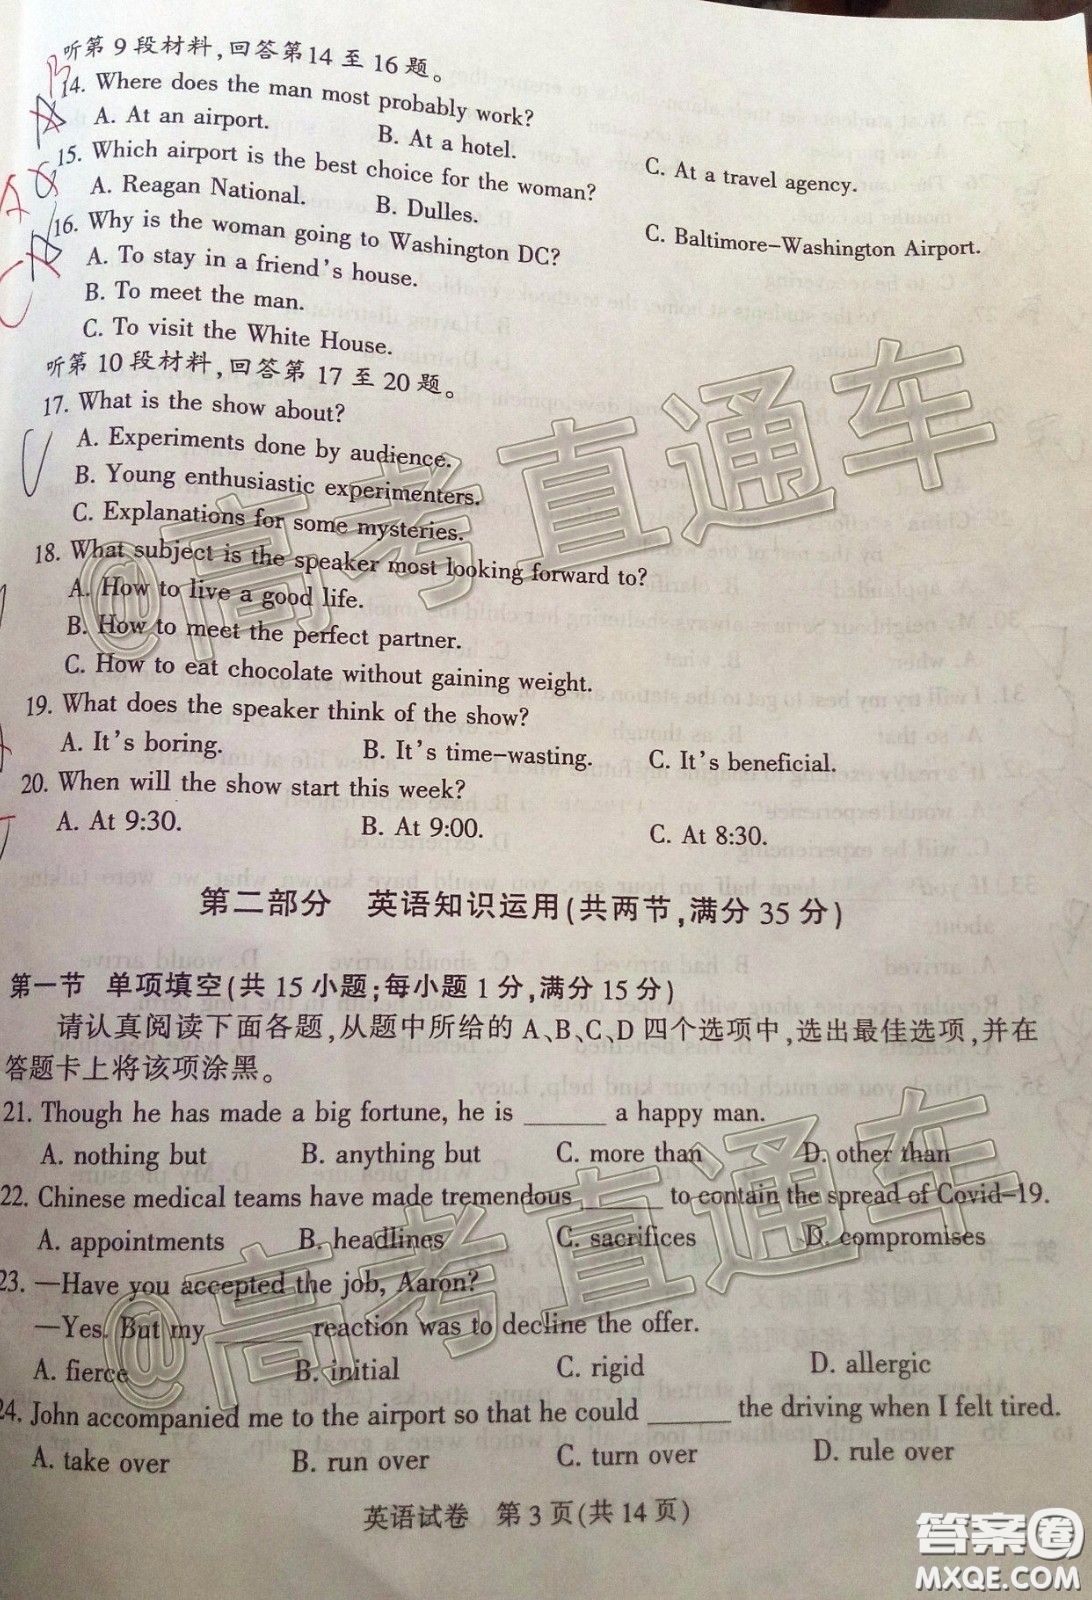 听第9段材料,回答第14至16题。
14. Where does the man most probably work?
A. At an airport. B. At a hotel. C. At a travel agency.
15. Which airport is the best choice for the woman?
A. Reagan National. B. Dulles. C. Baltimore-Washington Airport.
16. Why is the woman going to Washington DC?
A. To stay in a friend's house.
B. To meet the man.
C. To visit the White House.
听第10段材料,回答第17至20题。
17. What is the show about?
A. Experiments done by audience.
B. Young enthusiastic experimenters.
C. Explanations for some mysteries.
18. What subject is the speaker most looking forward to?
A. How to live a good life.
B. How to meet the perfect partner.
C. How to eat chocolate without gaining weight.
19. What does the speaker think of the show?
A. It's boring. B. It's time-wasting. C. It's beneficial.
20. When will the show start this week?
A. At 9:30. B. At 9:00. C. At 8:30.
第二部分 英语知识运用(共两节,满分35分)
第一节 单项填空(共15小题;每小题1分,满分15分)
请认真阅读下面各题,从题中所给的A、B、C、D四个选项中,选出最佳选项,并在
答题卡上将该项涂黑。
21. Though he has made a big fortune, he is ______ a happy man.
A. nothing but B. anything but C. more than D. other than
22. Chinese medical teams have made tremendous ______ to contain the spread of Covid-19.
A. appointments B. headlines C. sacrifices D. compromises
23. —Have you accepted the job, Aaron?
—Yes. But my ______ reaction was to decline the offer.
A. fierce B. initial C. rigid D. allergic
24. John accompanied me to the airport so that he could ______ the driving when I felt tired.
A. take over B. run over C. turn over D. rule over
英语试卷 第3页(共14页)
@高考直通车
@高考直通车
答案圈
MXQE.COM